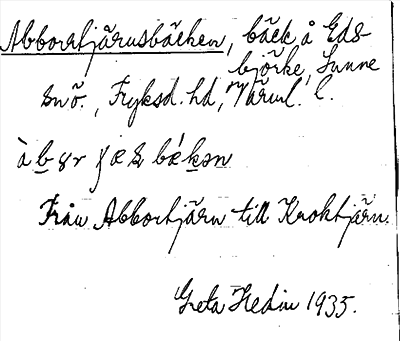 Abborrtjärnsbäcken, bäck å Eds-
björke, Sunne
snö., Fryksd. hd, Värml. l.
Från Abborrtjärn till Kroktjärn.
Greta Hedin 1935.